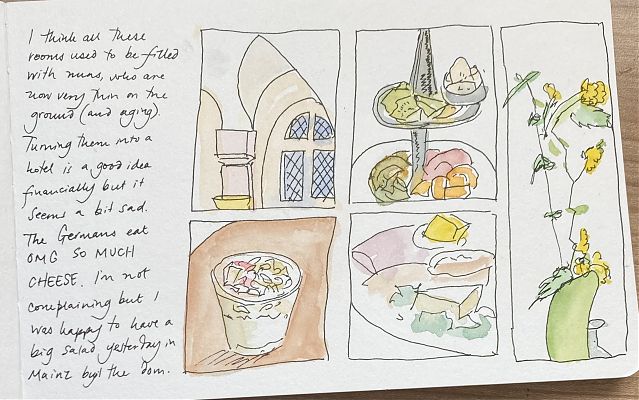 I think all these
rooms used to be filled
with nuns, who are
now very thin on the
ground (and aging).
Turning them into a
hotel is a good idea
financially but it
seems a bit sad.
The Germans eat
OMG SO MUCH
CHEESE. I'm not
complaining but I
was happy to have a
big salad yesterday in
Mainz by the Dom.